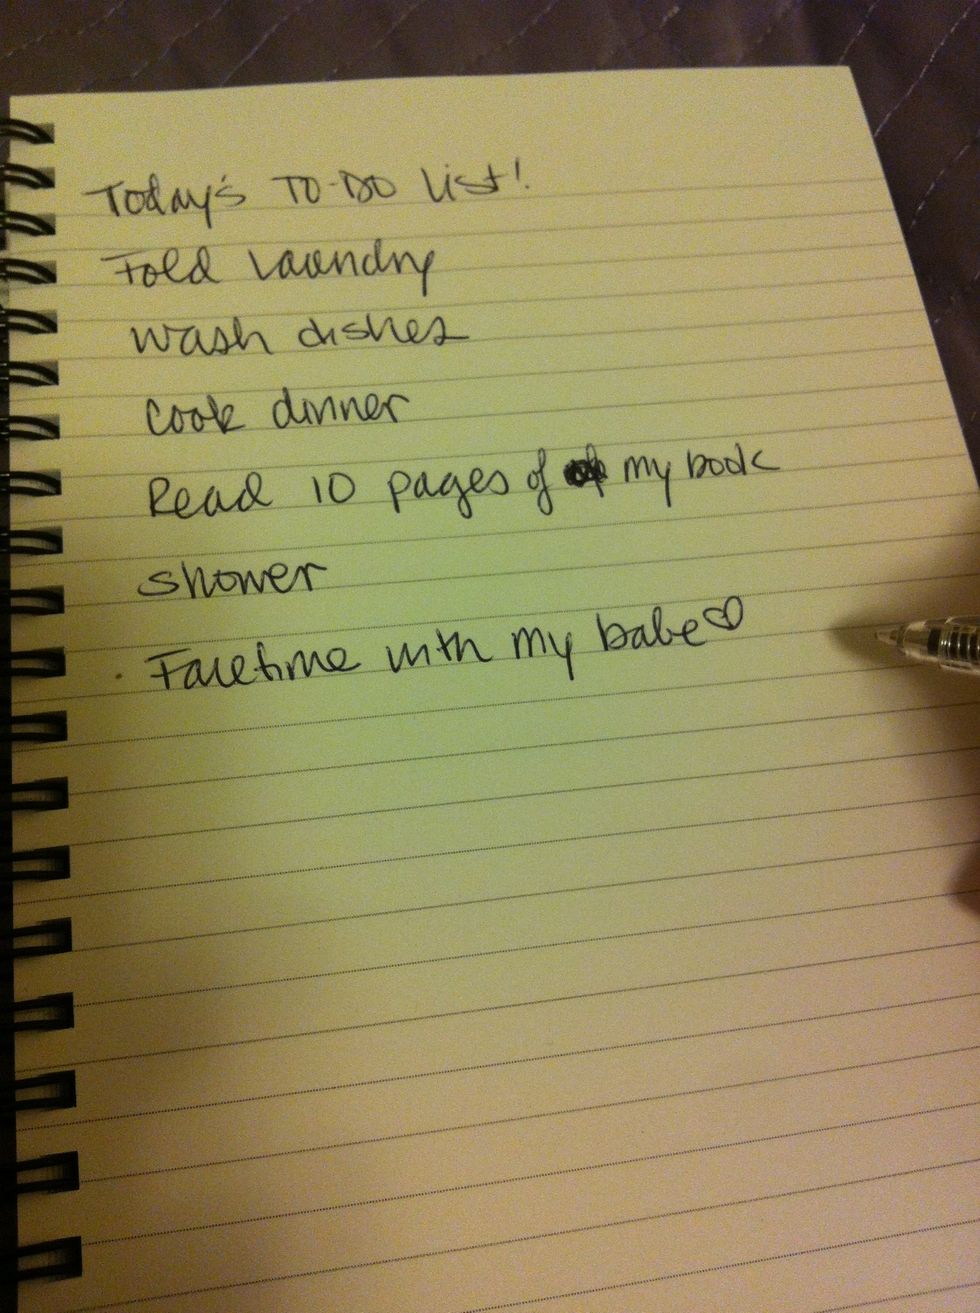 Today's TO-DO list!
Fold laundry
wash dishes
cook dinner
Read 10 pages of my book
shower
Facetime with my babe♡